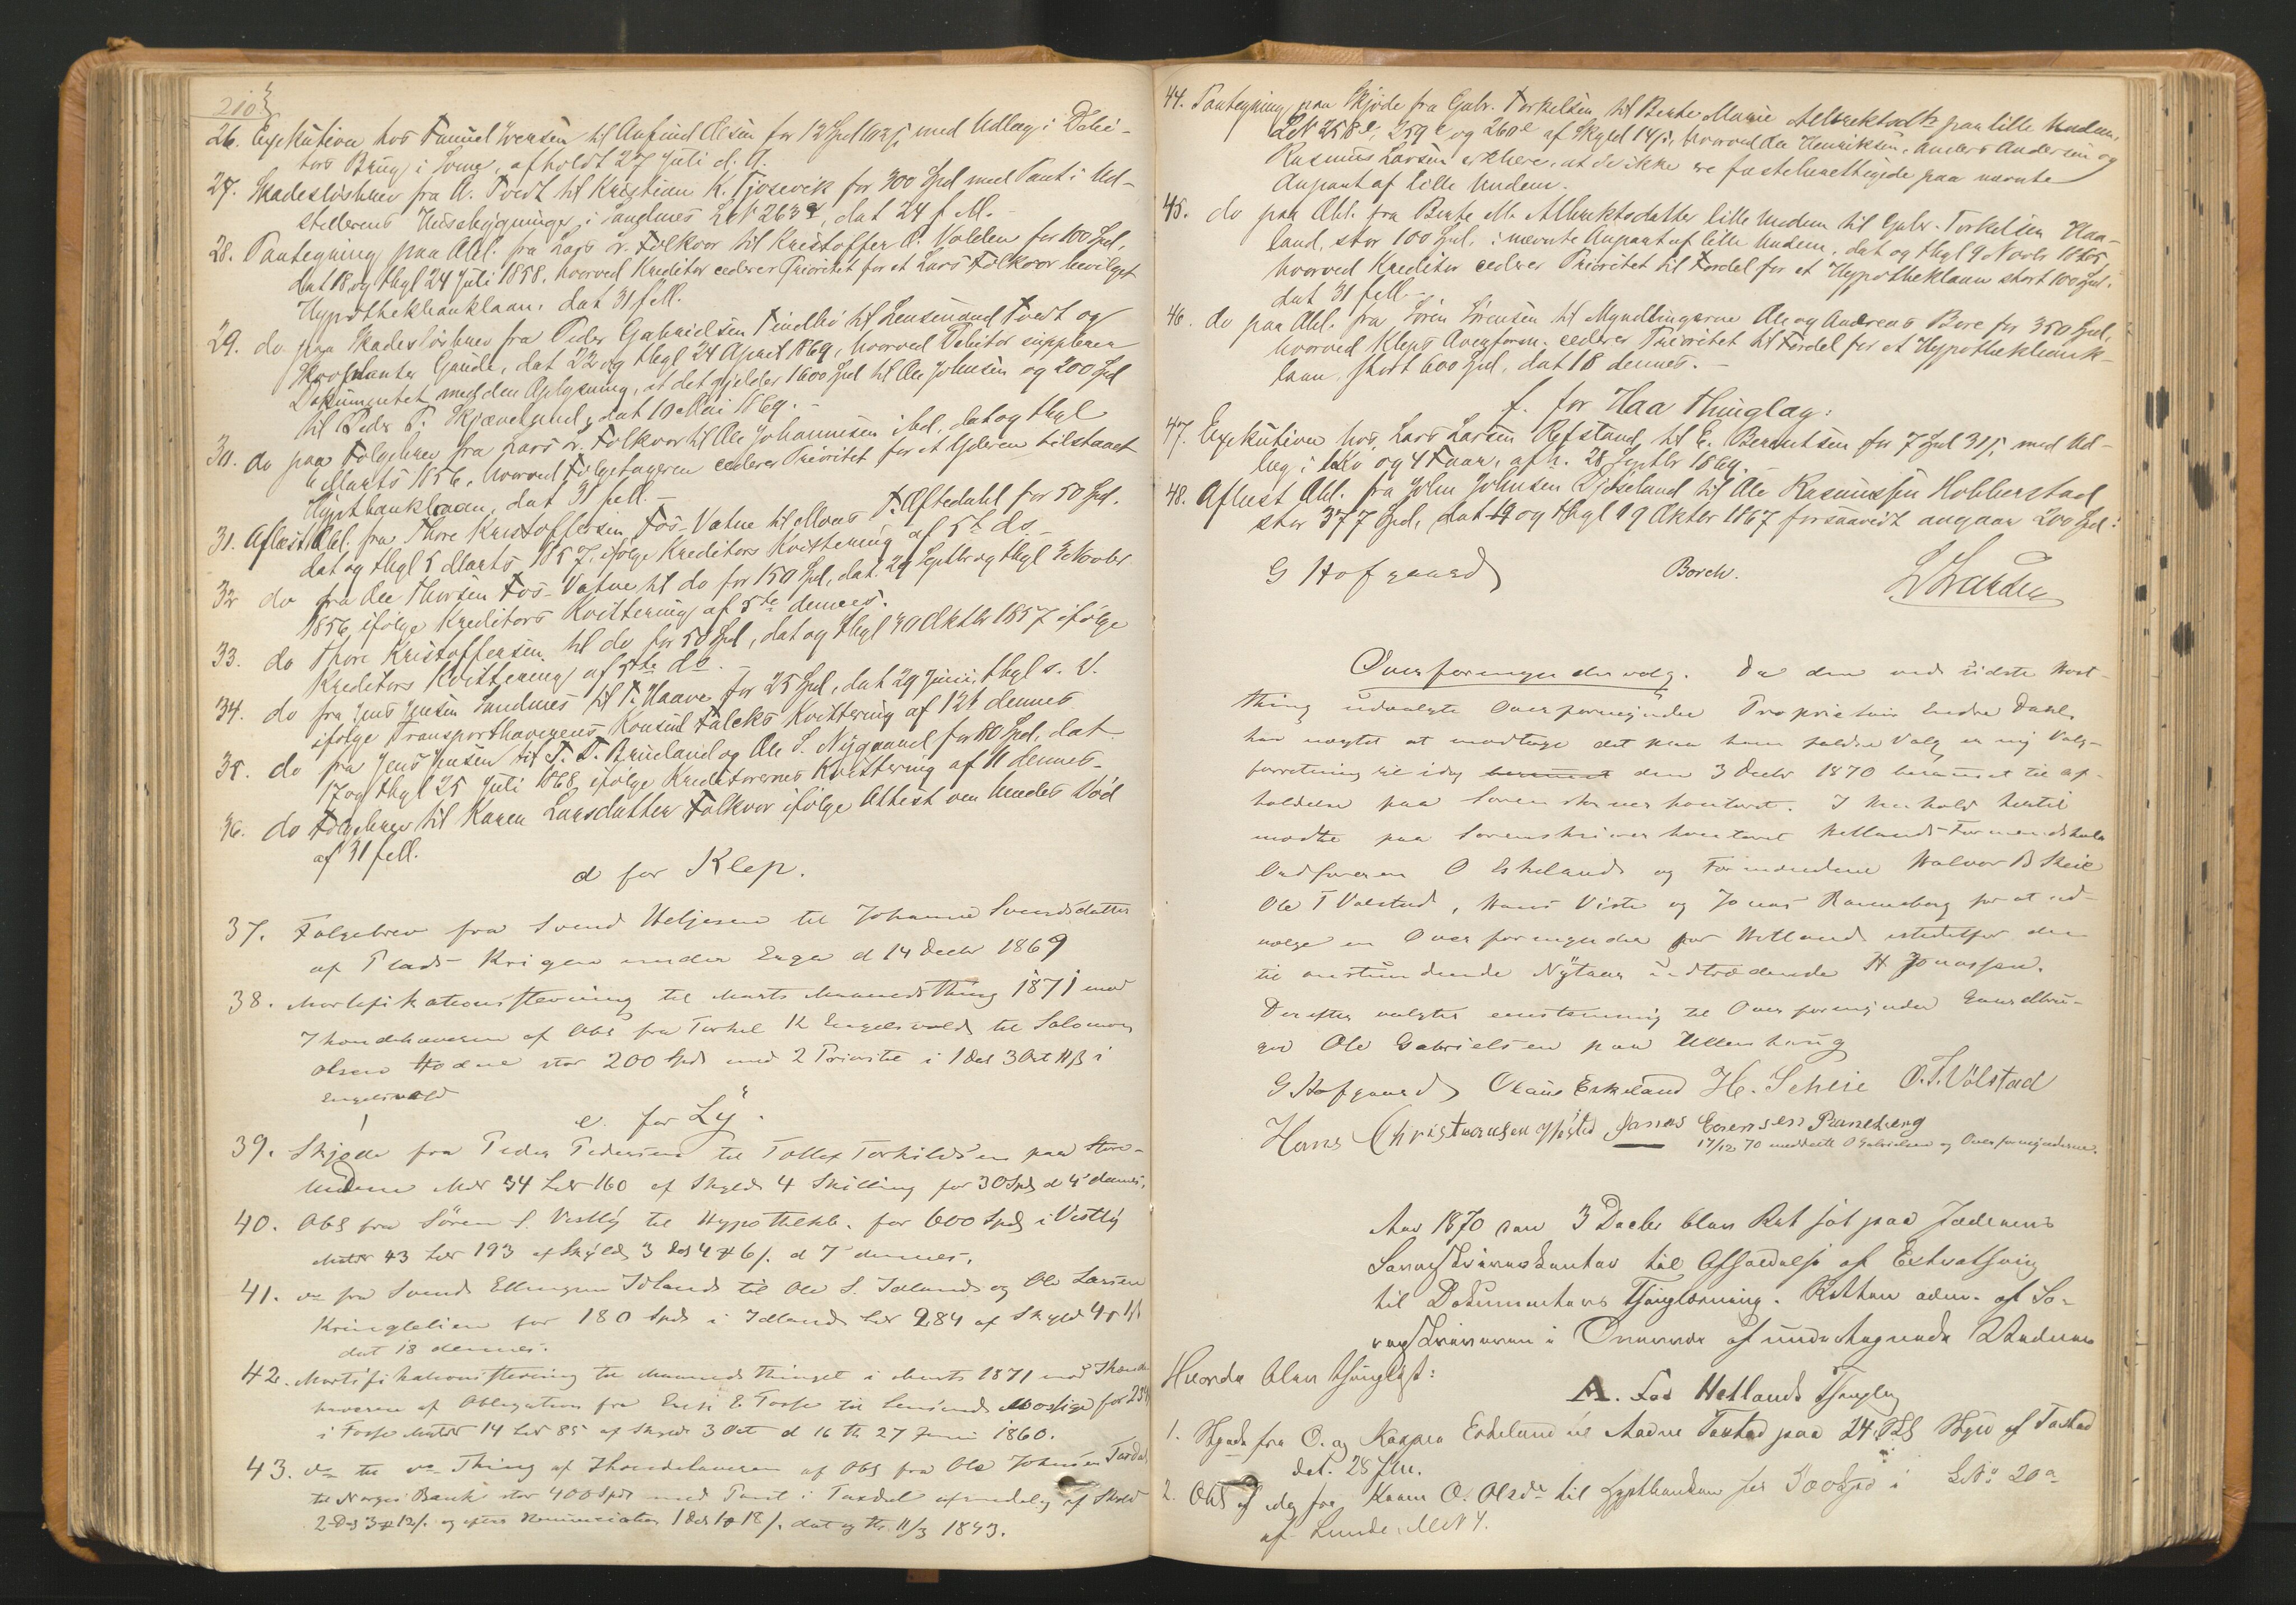 210
26. Exekution hos Tonnes Iversen til Anfind Olsen for 12 Spd 103 s, med Udlæg i Debi-
tors Brug i Somme, afholdt 27 Juli d. A.
27. Skadesløsbrev fra A. Tvedt til Kristian K. Tjosevik for 300 Spd med Pant i Ud-
stederens Husebygninger i Sandnes LN 263 a, dat 24 f. M.
28. Paategning paa Obl. fra Lars R. Folkvor til Kristoffer O. Volden for 100 Spd,
dat 18 og thgl 24 Juli 1858, hvorved Kreditor cederer Prioritet for et Lars Folkvor bevilget
Hypothekbanklaan, dat 31 f.M.
29. do paa Skadesløsbrev fra Peder Gabrielsen til Lensmand Tvedt og
Gaude, dat 22 og thgl 24 April 1869, hvorved Debitor supplerer
Dokumentet med den Oplysning, at det gjelder 1600 Spd til Ole Johnsen og 200 Spd
til Peder P. Skjævelund, dat 10 Mai 1869.
30. do paa Folgebrev fra Lars R. Folkvor til Ole Johannesen ibd, dat og thgl
6 Marts 1856, hvorved Folgetageren cederer Prioritet for et Yderen tilstaaet
Hypthbanklaan, dat 31 f.M.
31. Aflæst Obl. fra Thore Kristoffersen Fos-Vatne til Mons T. Oftedahl for 50 Spd.
dat og thgl 5 Marts 1857, ifølge Kreditors Kvittering af 5te ds.
32 do fra Ole Thorsen Fos-Vatne til do for 150 Spd, dat. 29 Septbr og thgl 3 Novbr
1856, ifølge Kreditors Kvittering af 5te dennes.
33. do Thore Kristoffersen til do for 50 Spd, dat og thgl 30 Oktbr 1857 ifølge
Kreditors Kvittering af 5te ds.
34. do fra Jens Jensen Sandnes til T. Haaver for 25 Spd, dat 29 Juni, thgl s. A.
ifølge Transporthaverens Konsul Falcks Kvittering af 12t dennes
35. do fra Jens Jensen til T. T. Brueland og Ole S. Nygaard for 80 Spd, dat
17 og thgl 25 Juli 1868 ifølge Kreditorernes Kvittering af 11 dennes.
36. do Folgebrev til Karen Larsdatter Folkvor ifølge Attest om hendes Død
af 31 f.M.
d for Klep.
37. Folgebrev fra Svend Heljesen til Johanne Svendsdatter
af Plads Krigen under Erga d 14 Decbr 1869
38. Mortifikationsstevning til Marts Maanedsthing 1871 mod
Ihændehaveren af Obl fra Torkel K Engelsvold til Salomon
Olsen Hodne stor 200 Spd med 2 Priorite i 1 Dal 3 Ort 11 ß i
Engelsvold
e. for Ly.
39. Skjøde fra Peder Pedersen til Tollef Torkildsen paa Store-
Undem MN 34 LN 160 af Skyld 4 Skilling for 30 Spd d 4 dennes.
40. Obl fra Sören S. Vestly til Hypothekb. for 600 Spd i Vestly
MN 43 LN 193 af Skyld 3 Dal 4 # 6 s. d 7 dennes.
41. do fra Svend Ellingsen Idland til Ole S. Idland og Ole Larsen
Kringlelien for 180 Spd i Idland LN 284 af Skyld
dat 18 dennes.
42. Mortifikationsstevning til Maanedsthinget i Marts 1871 mod Ihænde
haveren af Obligation fra E. Fosse til
i Fosse MN 14 LN 85 af Skyld 3 Ort d 16 th 27 Juni 1860.
43. do til do Thing af Ihændehaveren af Obl fra Ole Johnsen Taxdal
til Norges Bank stor 400 Spd med Pant i Taxdal af Skyld
2 Dal 3 # 12 s. og efter 1 Dal 1 # 18 s. dat og th. 11/3 1843.
44. Paategning paa Skjøde fra Gabr. Torkelsen til Berte Marie Albrektsdtr paa lille Undem,
LN 258 e, 259 e og 260 e af Skyld 14 s, hvorved Ole Henriksen, Anders Andersen og
Rasmus Larsen erklære, at de ikke ere fæsteberettigede paa nævnte
Anpart af lille Undem.
45. do paa Obl. fra Berte M. Albrektsdatter lille Undem til Gabr. Torkelsen Haa-
land, stor 100 Spd, i nævnte Anpart af lille Undem, dat og thgl 9 Novbr 1865,
hvorved Kreditor cederer Prioritet til Fordel for et Hypotheklaan stort 100 Spd.
dat 31 f.M.
46. do paa Obl. fra Sören Sörensen til Myndlingerne Ole og Andreas Bore for 350 Spd,
hvorved Kleps Overform. cederer Prioritet til Fordel for et Hypothekbank-
laan, stort 600 Spd, dat 18 dennes.
f. for Haa Thinglag:
47. Exekution hos Lars Larsen Refsland, til E. Berentsen for 7 Spd 31 s, med Ud-
læg i 1 Ko og 4 Faar, afh. 28 Septbr 1869.
48. Aflæst Obl. fra John Johnsen til Ole Rasmussen Hobberstad
stor 377 Spd, dat 19 og thgl 19 Oktbr 1867 forsaavidt angaar 200 Spd:
G Hofgaard Borch. L Larsen
Overformynder valg. Da den ved sidste Høst-
thing udvalgte Overformynder Proprietair Endre Dahl,
har nægtet at modtage det paa ham faldne Valg er ny Valg-
forretning til idag den 3 Decbr 1870 berammet til af-
holdelse paa Sorenskriverkontoret. I Henhold hertil
mødte paa Sorenskriverkontoret Hetlands Formandskabs
Ordfører O Eskeland og Formændene Halvor B Skeie
Ole T Volstad, Hans Viste og Jonas Ranneberg for at ud-
vælge en Overformynder for Hetland istedetfor den
til anstundende Nytaar udtrædende H Jonassen.
Derefter valgtes enstemmig til Overformynder Gaardbru-
ger Ole Gabrielsen paa Ullenhaug
G Hofgaard Olaus Eskeland H. Scheie O. T. Volstad
Hans Christensen Jonas Eorensen Raneberg
17/12 70 meddelt O Gabrielsen og Overformynderne.
Aar 1870 den 3 Decbr blev Ret sat paa Jæderens
Sorenskriverkontor til Afholdelse af Extrathing
til Dokumenters Thinglæsning. Retten adm. af So-
renskriveren i Overvær af undertegnede Vidner
Hvorda blev thinglyst:
A. For Hetlands Thinglag
1. Skjøde fra O. og Kasper Eskeland til Aadne Tastad paa 24 s Skyld af Tastad
dat. 28 f.M.
2. Obl af idag fra Karen O. Olsdr til Hypthbanken for 300 Spd i LN 20 a
af Lunde, MN 4.